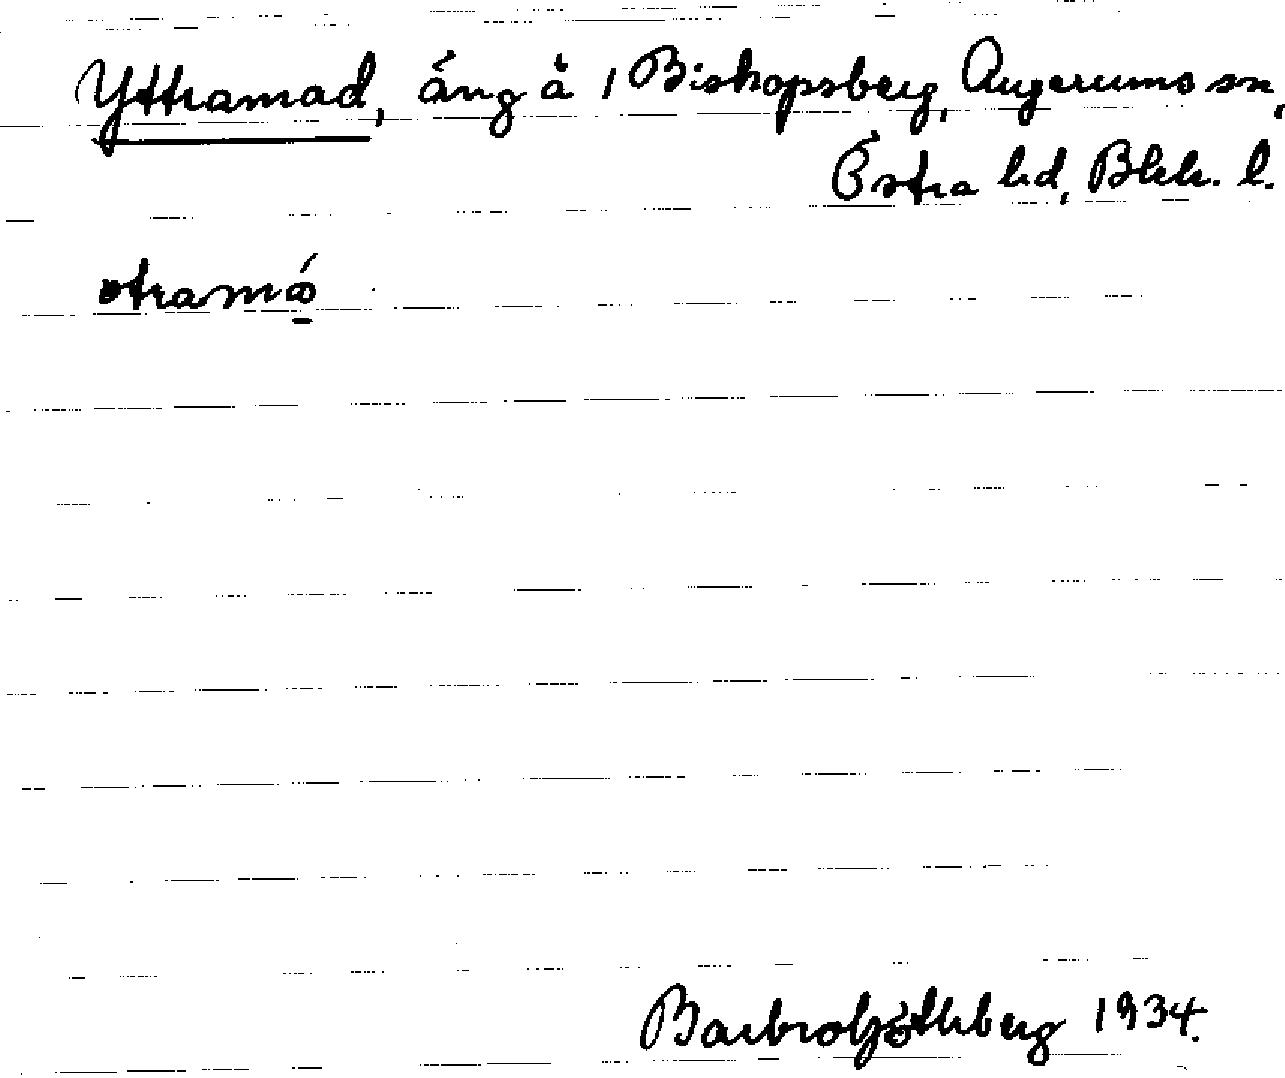 Yttramad, äng å 1 Biskopsberg, Augerums sn,
Östra hd, Blek. l.
Barbro Göthberg 1934.